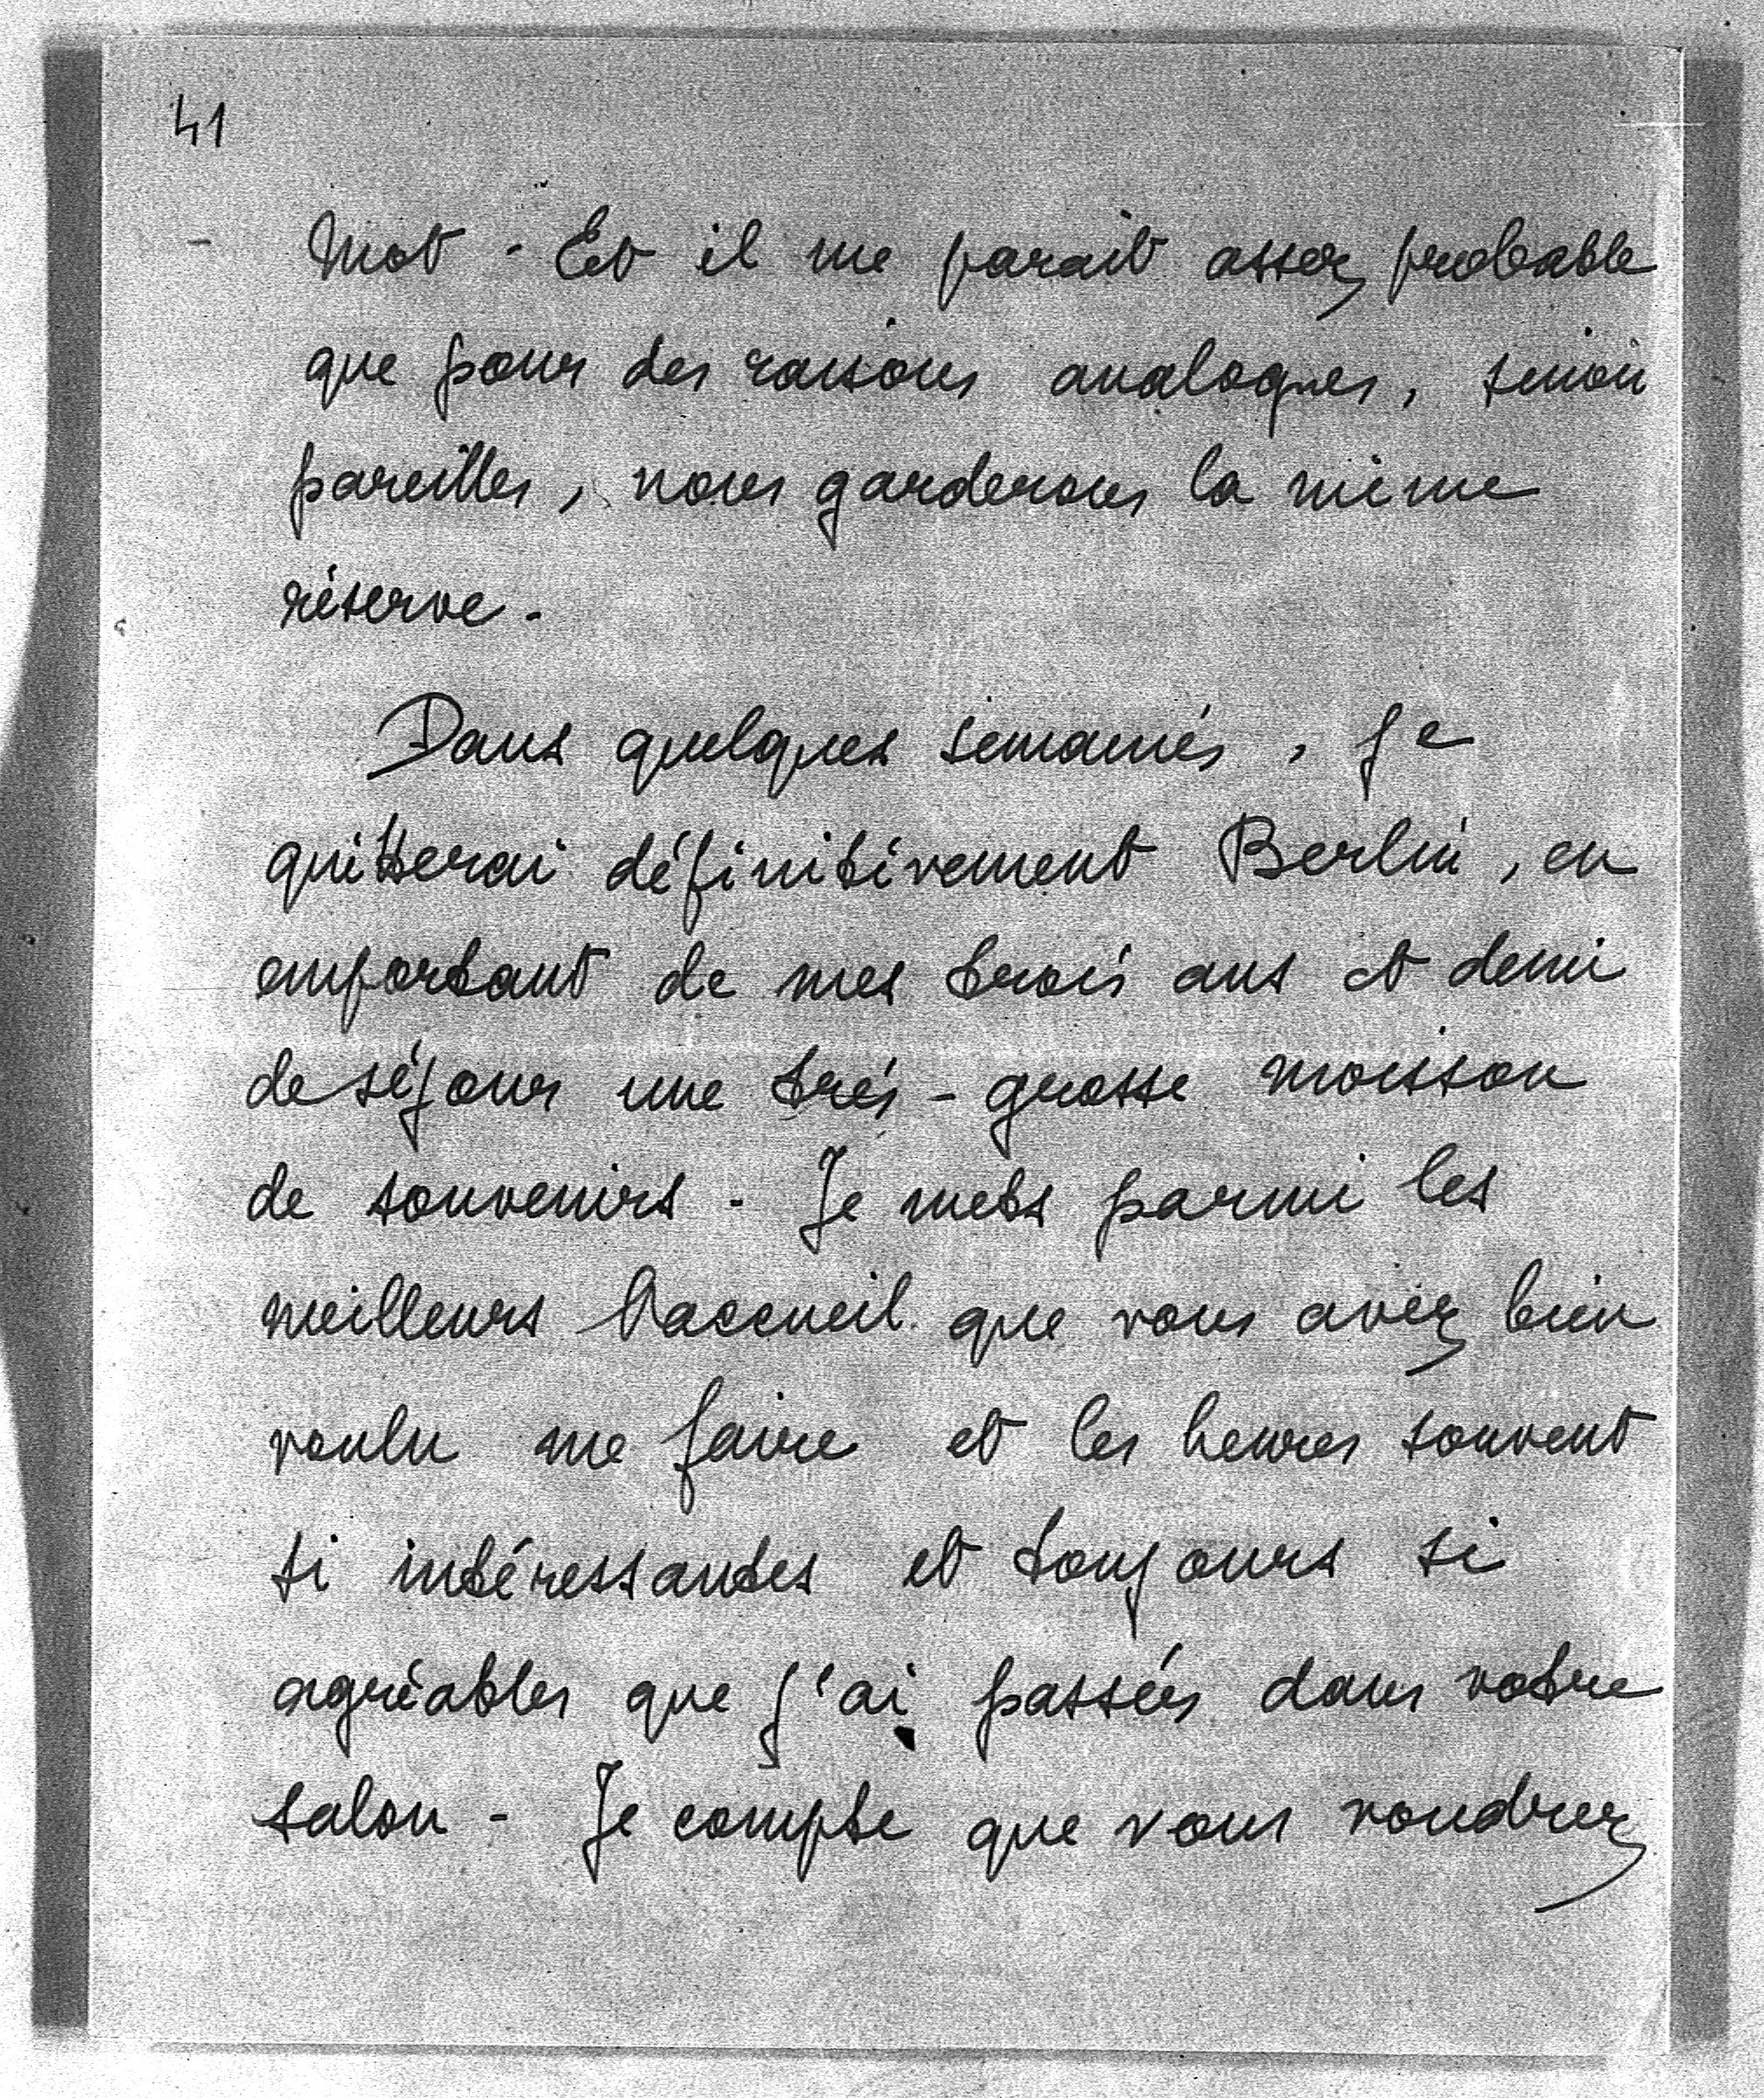 41
mot - Et il me parait assez probable
que pour des raisons analogues, sinon
pareilles, nous garderons la même
réserve -
Dans quelques semaines, je
quitterai définitivement Berlin, en
emportant de mes trois ans et demi
de séjour une très-grosse moisson
de souvenirs - Je mets parmi les
meilleurs l'accueil que vous avez bien
voulu me faire et les heures souvent
si intéressantes et toujours si
agréables que j'ai passées dans votre
salon - Je compte que vous voudrez